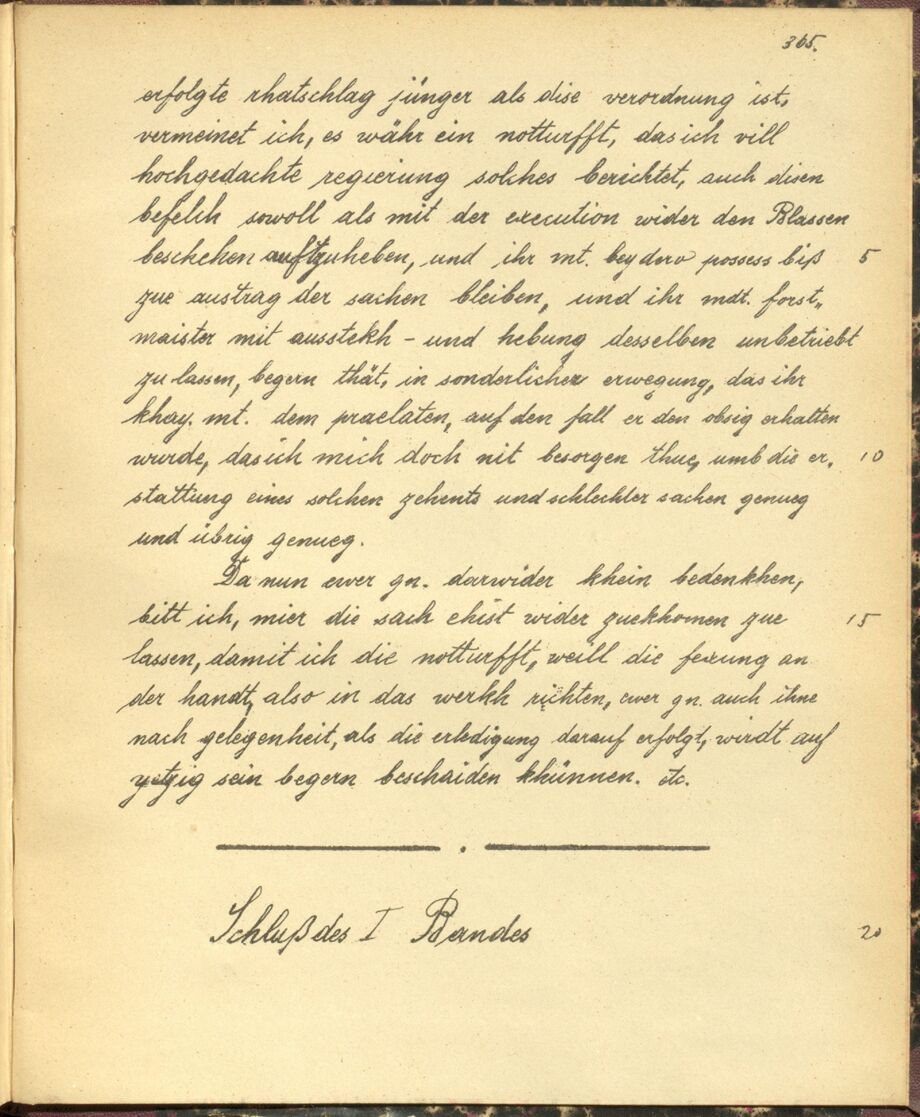 365.
erfolgte rhatschlag jünger als dise verordnung ist,
vermeinet ich, es währ ein notturfft, das ich vill
hochgedachte regierung solches berichtet, auch disen
befelch sowoll als mit der execution wider den Blassen
beschehen auffzuheben, und ihr mt. bey dero possess biß 5
zue austrag der sachen bleiben, und ihr mdt. forst„
maister mit ausstekh - und hebung desselben unbetriebt
zu lassen, begern thät, in sonderlicher erwegung, das ihr
khay. mt. dem praelaten, auf den fall er den obsig erhalten
wurde, das ich mich doch nit besorgen thue, umb die er„ 10
stattung eines solchen zehents und schlechter sachen genueg
und übrig genueg.
Da nun ewer gn. darwider khein bedenkhen,
bitt ich, mier die sach ehist wider zuekhomen zue 15
lassen, damit ich die notturfft, weill die fexung an
der handt, also in das werkh richten, ewer gn. auch ihne
nach gelegenheit, als die erledigung darauf erfolgt, wirdt auf
yetzig sein begern beschaiden khünnen. etc.
Schluß des I Bandes 20